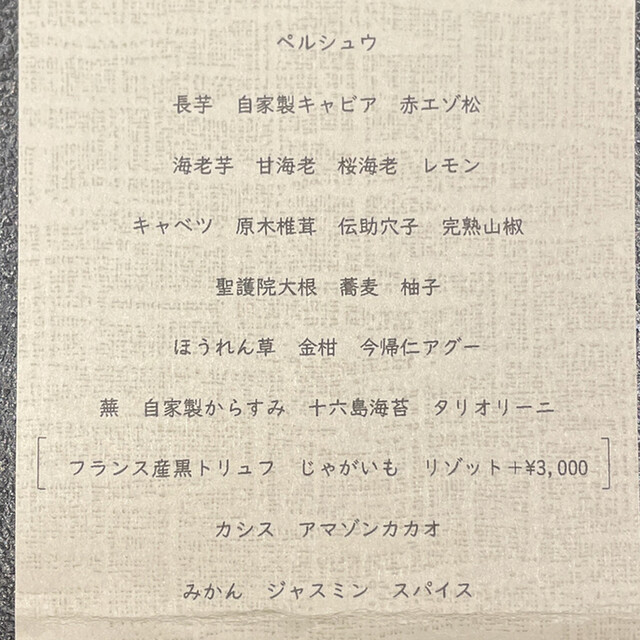 ペルシュウ
長芋　自家製キャビア　赤エゾ松
海老芋　甘海老　桜海老　レモン
キャベツ　原木椎茸　伝助穴子　完熟山椒
聖護院大根　蕎麦　柚子
ほうれん草　金柑　今帰仁アグー
蕪　自家製からすみ　十六島海苔　タリオリーニ
フランス産黒トリュフ　じゃがいも　リゾット＋¥3,000
カシス　アマゾンカカオ
みかん　ジャスミン　スパイス